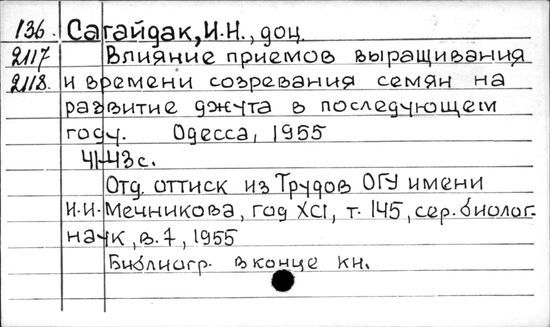 136. Сагайдак, И.Н., доц.
2117 Влияние приемов выращивания
2118. и времени созревания семян на
развитие джута в последующем
году. Одесса, 1955
41-43 с.
Отд. оттиск из Трудов ОГУ имени
И.И. Мечникова, год XCI, т. 145, сер. биолог.
наук, в. 7, 1955
Библиогр. в конце кн.